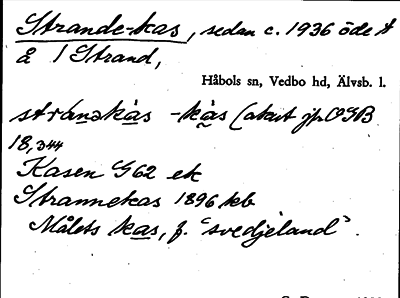 Strande-kas, sedan c. 1936 öde t
å 1 Strand,
Håbols sn, Vedbo hd, Älvsb. l.
stránəkàs -kàs (akut jfr OGB
18, 344
Kasen G62 ek
Strannekas 1896 kb
Målets kas, f. "svedjeland".